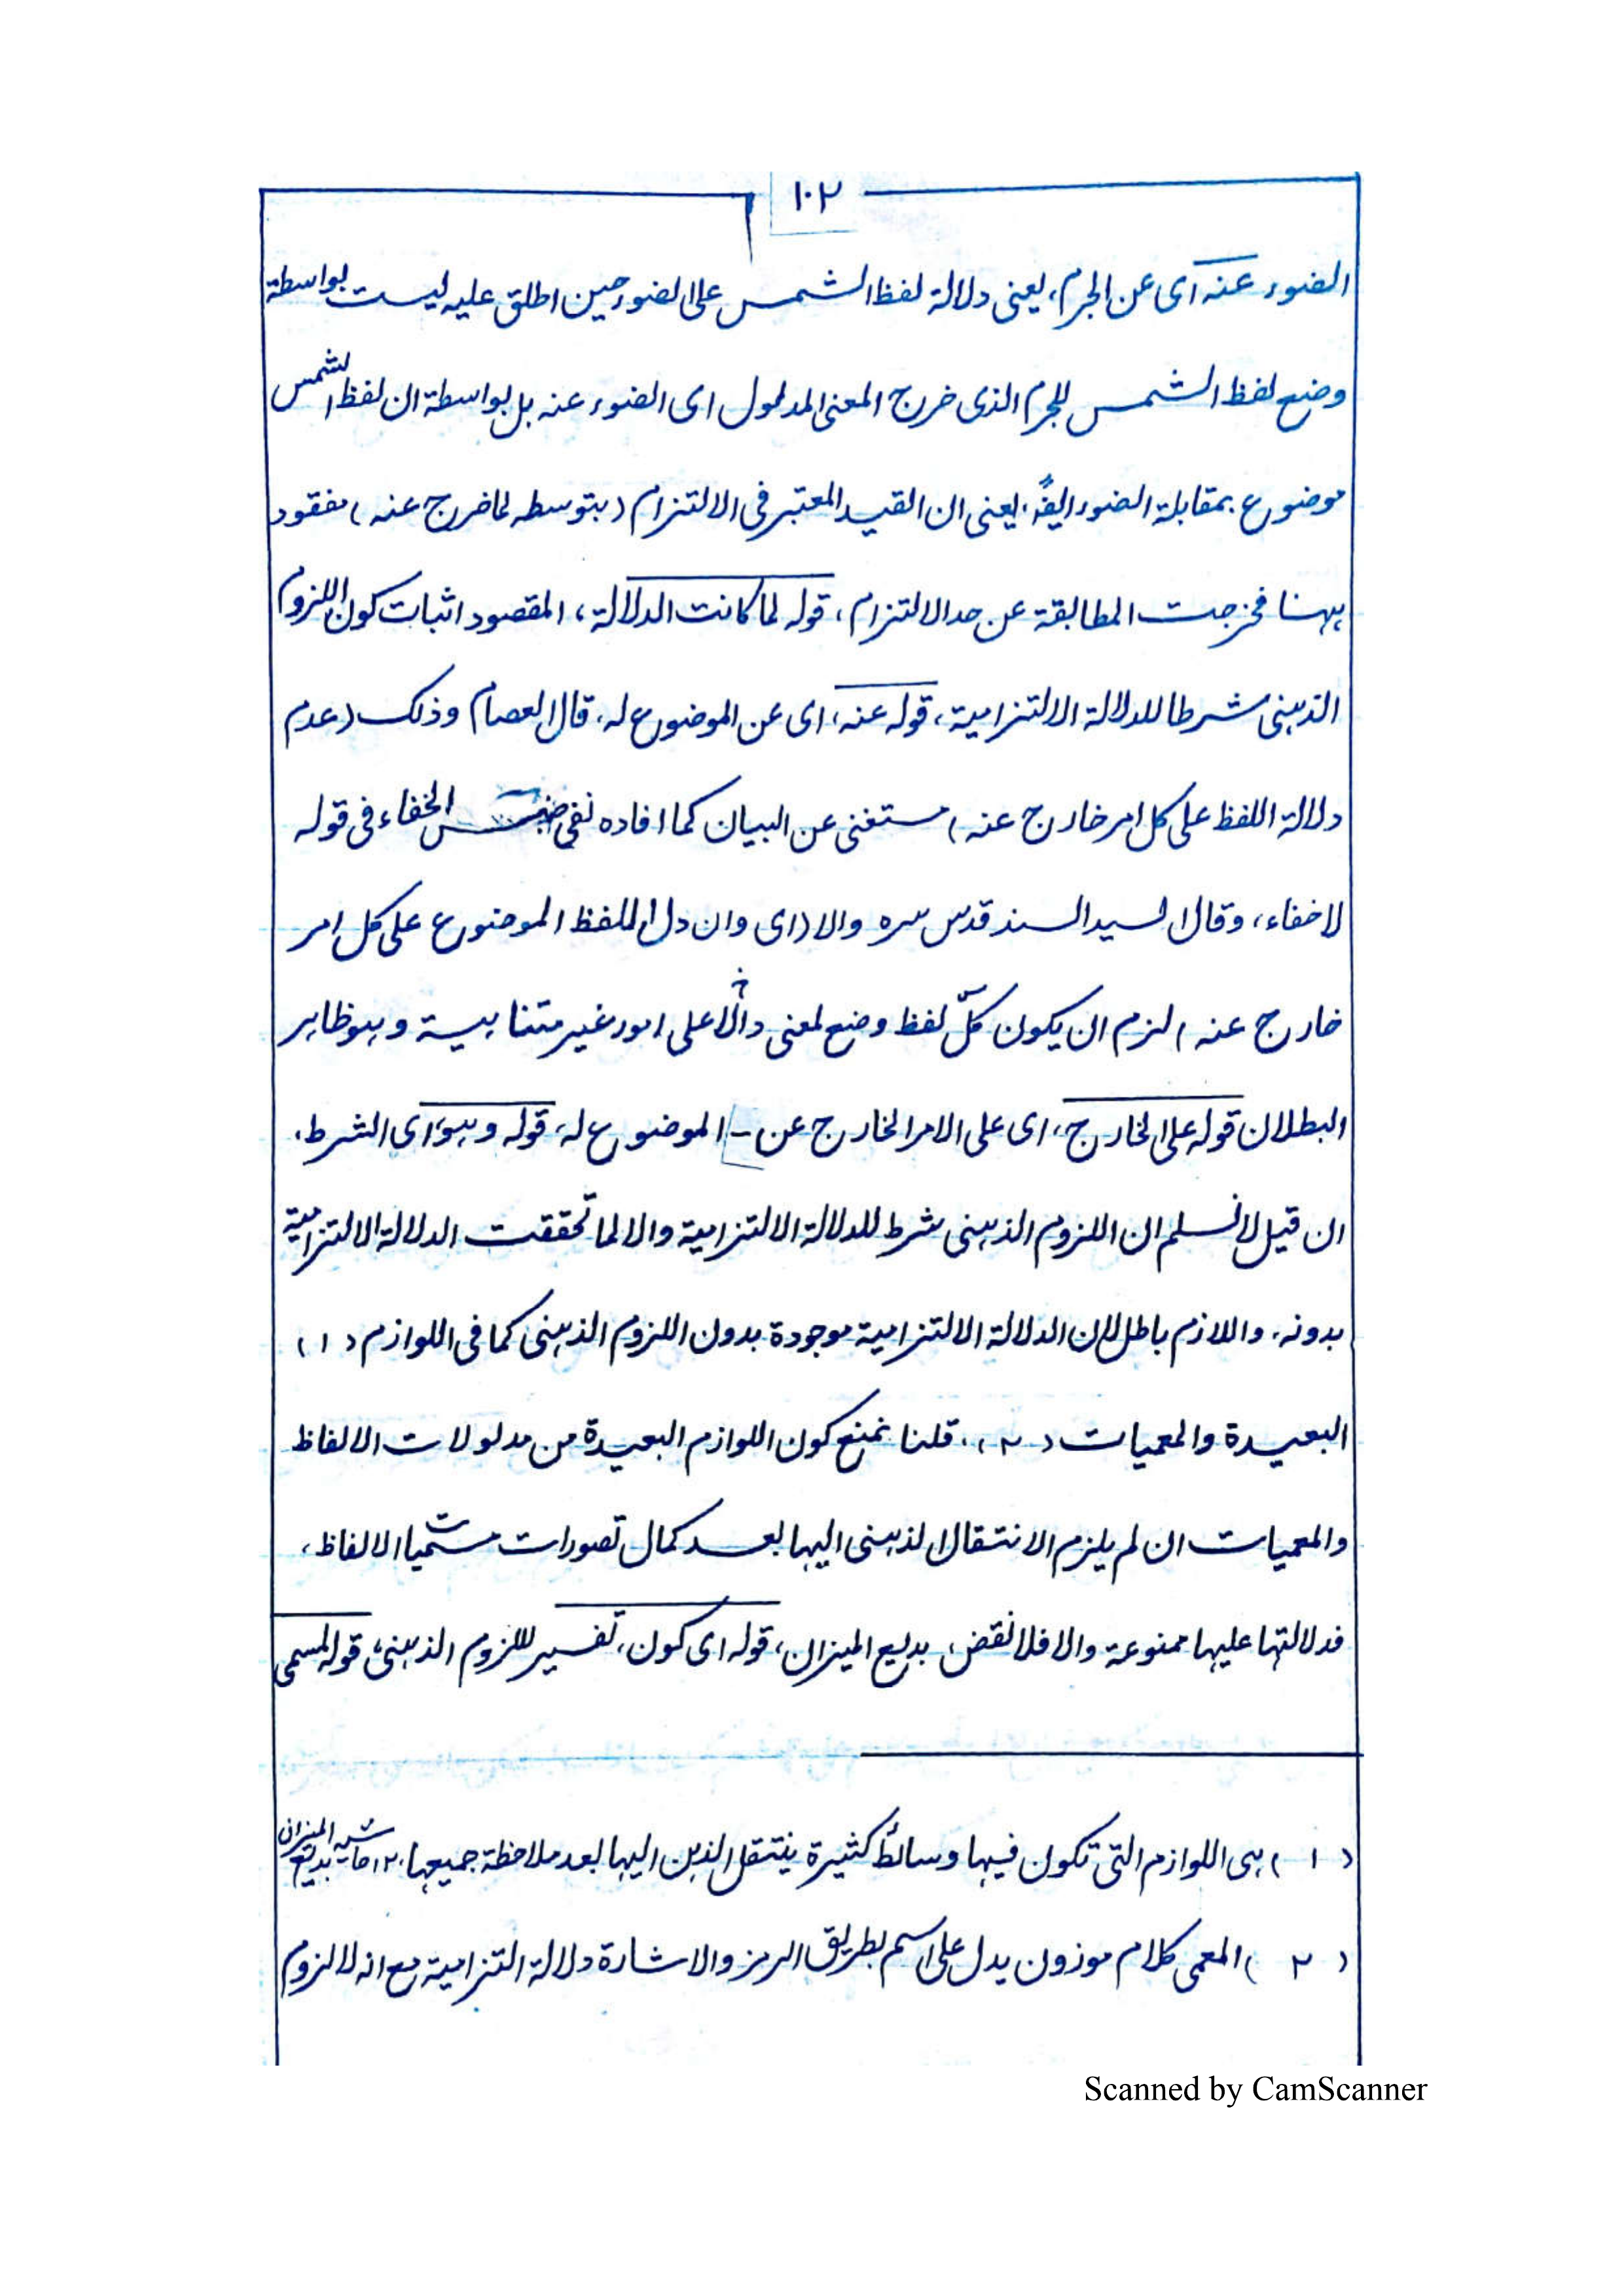 ١٠٢
الضوء عنه اى عن الجرم، يعنى دلالة لفظ الشمس على الضوء حين اطلق عليه ليست بواسطة
وضع لفظ الشمس للجرم الذى خرج المعنى المدلول اى الضوء عنه بل بواسطة ان لفظ الشمس
موضوع بمقابلة الضوء ايضًا، يعنى ان القيد المعتبر فى الالتزام (بتوسطه لما خرج عنه) مفقود
ههنا فخرجت المطابقة عن حد الالتزام، قوله لما كانت الدلالة، المقصود اثبات كون اللزوم
الذهنى شرطا للدلالة الالتزامية، قوله عنه، اى عن الموضوع له، قال العصام وذلك (عدم
دلالة اللفظ على كل امر خارج عنه) مستغنى عن البيان كما افاده نفى جنس الخفاء فى قوله
لا خفاء، وقال السيد السند قدس سره والا (اى وان دل اللفظ الموضوع على كل امر
خارج عنه) لزم ان يكون كلّ لفظ وضع لمعنى دالّا على امور غير متناهية وهو ظاهر
البطلان قوله على الخارج، اى على الامر الخارج عن - الموضوع له، قوله وهو، اى الشرط،
ان قيل لا نسلم ان اللزوم الذهنى شرط للدلالة الالتزامية والا لما تحققت الدلالة الالتزامية
بدونه، واللازم باطل لان الدلالة الالتزامية موجودة بدون اللزوم الذهنى كما فى اللوازم (١)
البعيدة والمعميات (٢)، قلنا نمنع كون اللوازم البعيدة من مدلولات الالفاظ
والمعميات ان لم يلزم الانتقال الذهنى اليها بعد كمال تصورات مسميات الالفاظ،
فدلالتها عليها ممنوعة والا فلا نقض، بديع الميزان، قوله اى كون، تفسير للزوم الذهنى، قوله المسمى
(١) هى اللوازم التى تكون فيها وسائط كثيرة ينتقل الذهن اليها بعد ملاحظة جميعها، ١٢ حاشيه بديع الميزان
(٢) المعمى كلام موزون يدل على اسم بطريق الرمز والاشارة دلالة التزامية مع انه لا لزوم
Scanned by CamScanner